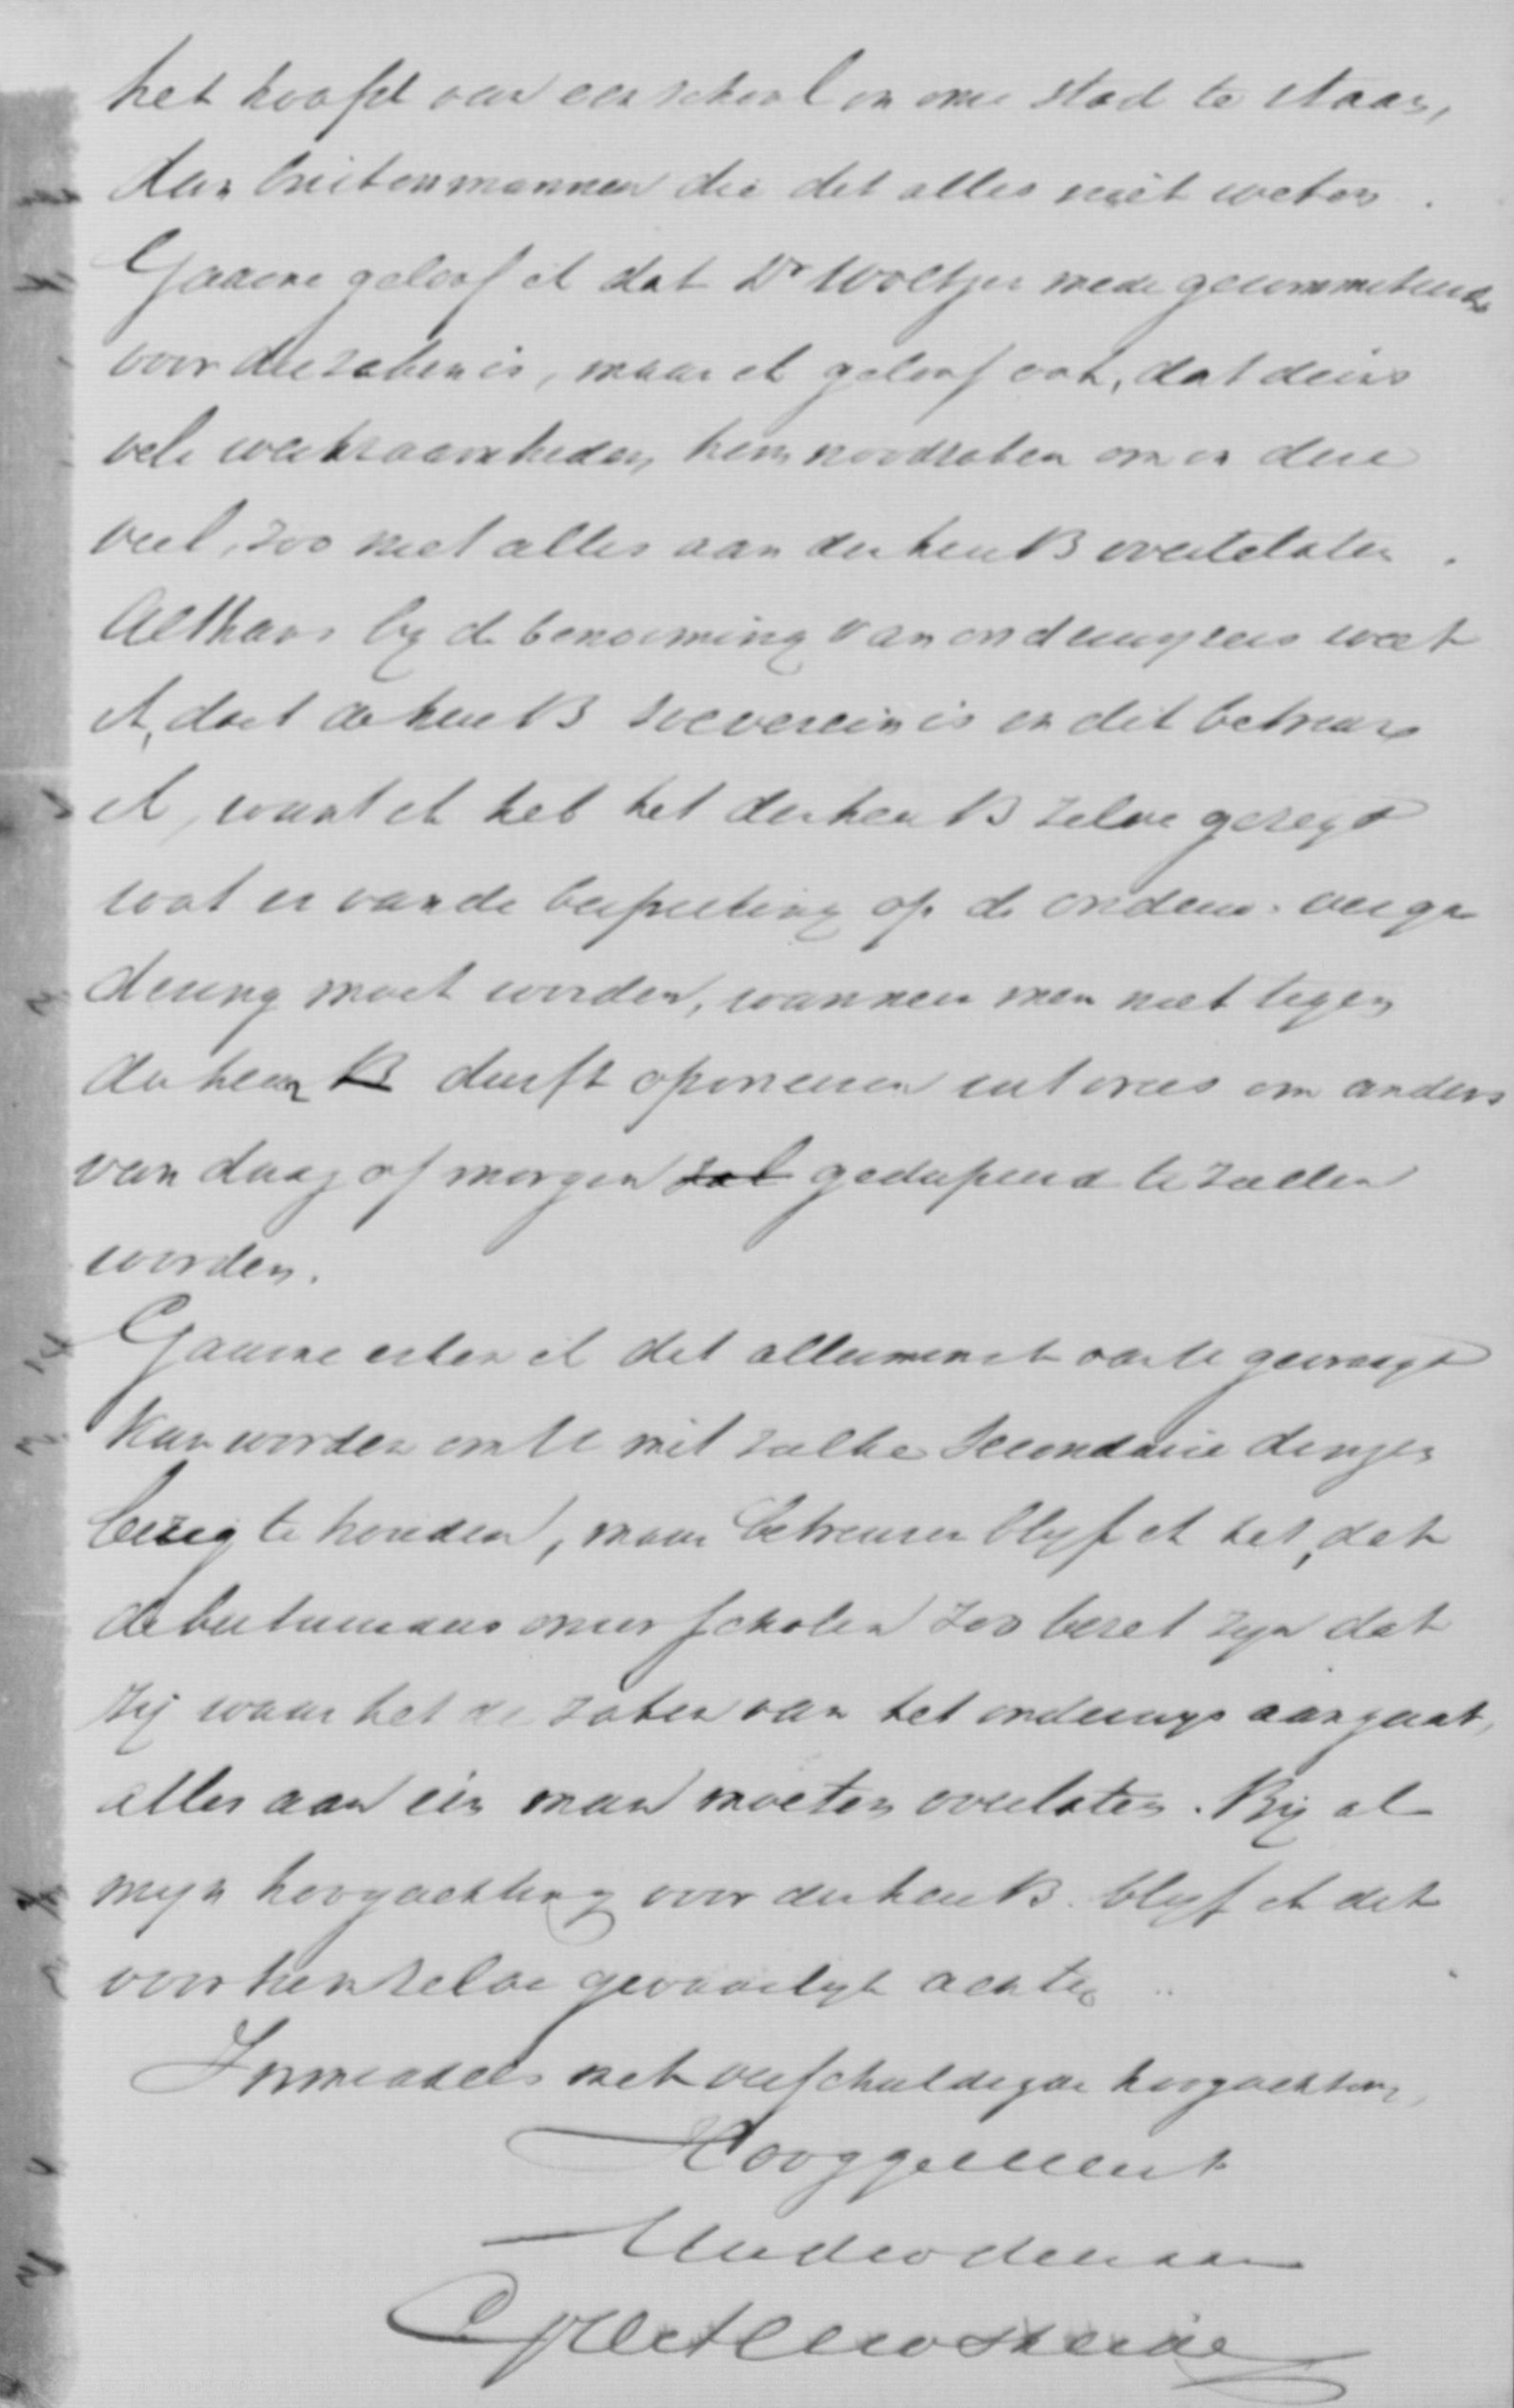 het hoofd van een school in onze stad te staan,
dan buitenmannen die dit alles niet weten.
Gaarne geloof ik dat Dr Woltjer mede gecommitteerde
voor die zaken is, maar ik geloof ook, dat diens
vele werkzaamheden hem noodzaken om in deze
veel, zoo niet alles aan den heer B over te laten.
Althans by de benoeming van onderwyzers weet
ik, dat de heer B souverein is en dit betreur
ik, want ik heb het den heer B zelve gezegd
wat er van de bespreking op de onderw. verga
dering moet worden, wanneer men niet tegen
den heer B durft oponeeren uit vrees om anders
van daag of morgen zal gedupeerd te zullen
worden.
Gaarne erken ik dat allerminst van U gevraagd
kan worden om U met zulke secondaire dingen
bezig te houden, maar betreuren blyf ik het, dat
de bestuurders onzer scholen zoo bezet zyn dat
zij waar het de zaken van het onderwys aangaat,
alles aan één man moeten overlaten. Bij al
myn hoogachting voor den heer B. blyf ik dit
voor hem zelve gevaarlyk achten
Inmiddels met verschuldigde hoogachting,
Hooggeleerde
Uw dw dienaar